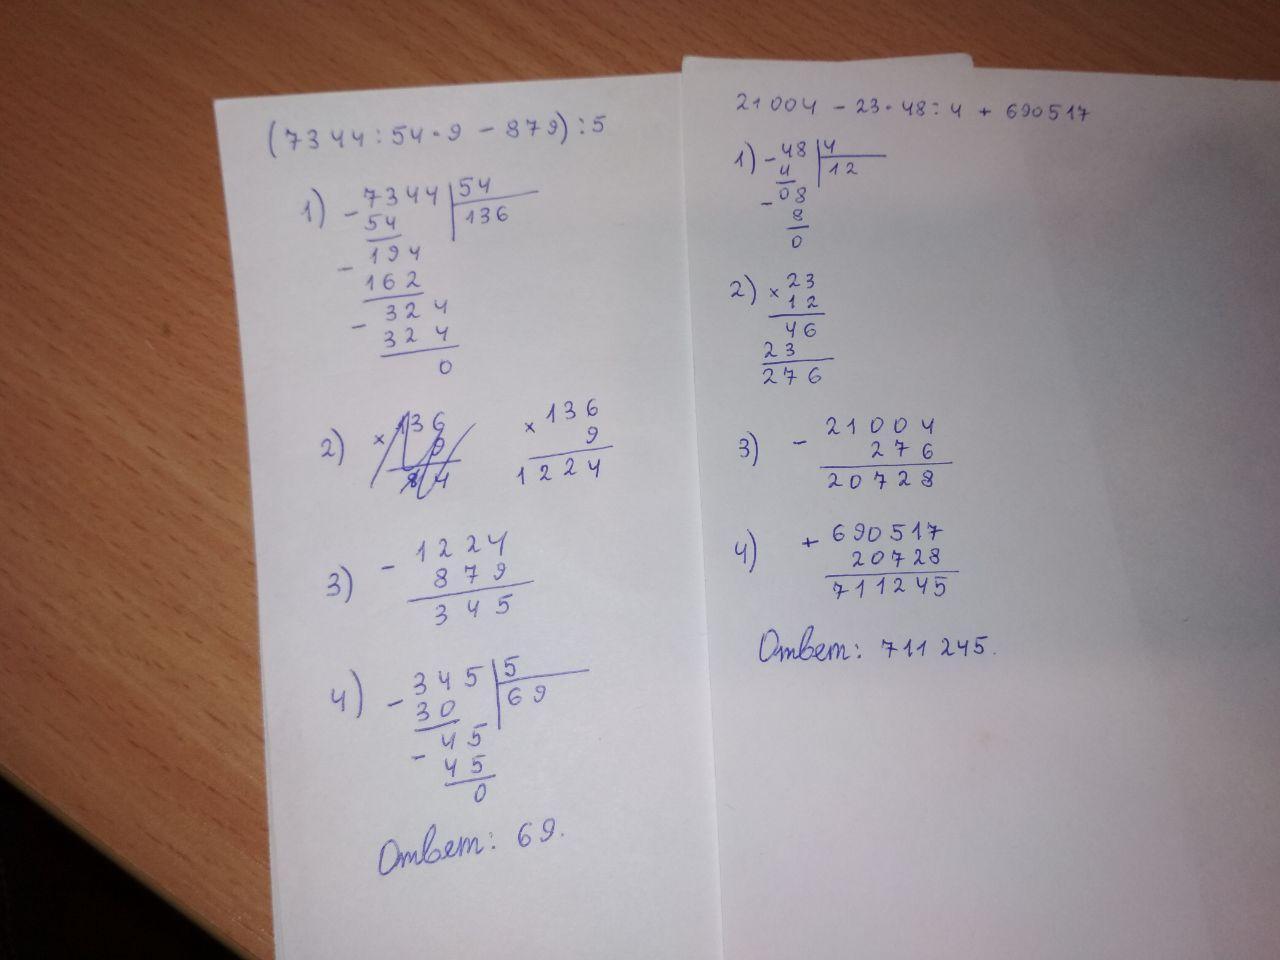 (7344:54·9 - 879):5
1) - 7344 | 54
54 | 136
- 194
162
- 324
324
0
2) × 136
9
× 136
9
1224
3) - 1224
879
345
4) - 345 | 5
30 | 69
- 45
45
0
Ответ: 69.
21004 - 23·48:4 + 690517
1) - 48 | 4
4 | 12
- 08
8
0
2) × 23
12
46
23
276
3) - 21004
276
20728
4) + 690517
20728
711245
Ответ: 711 245.